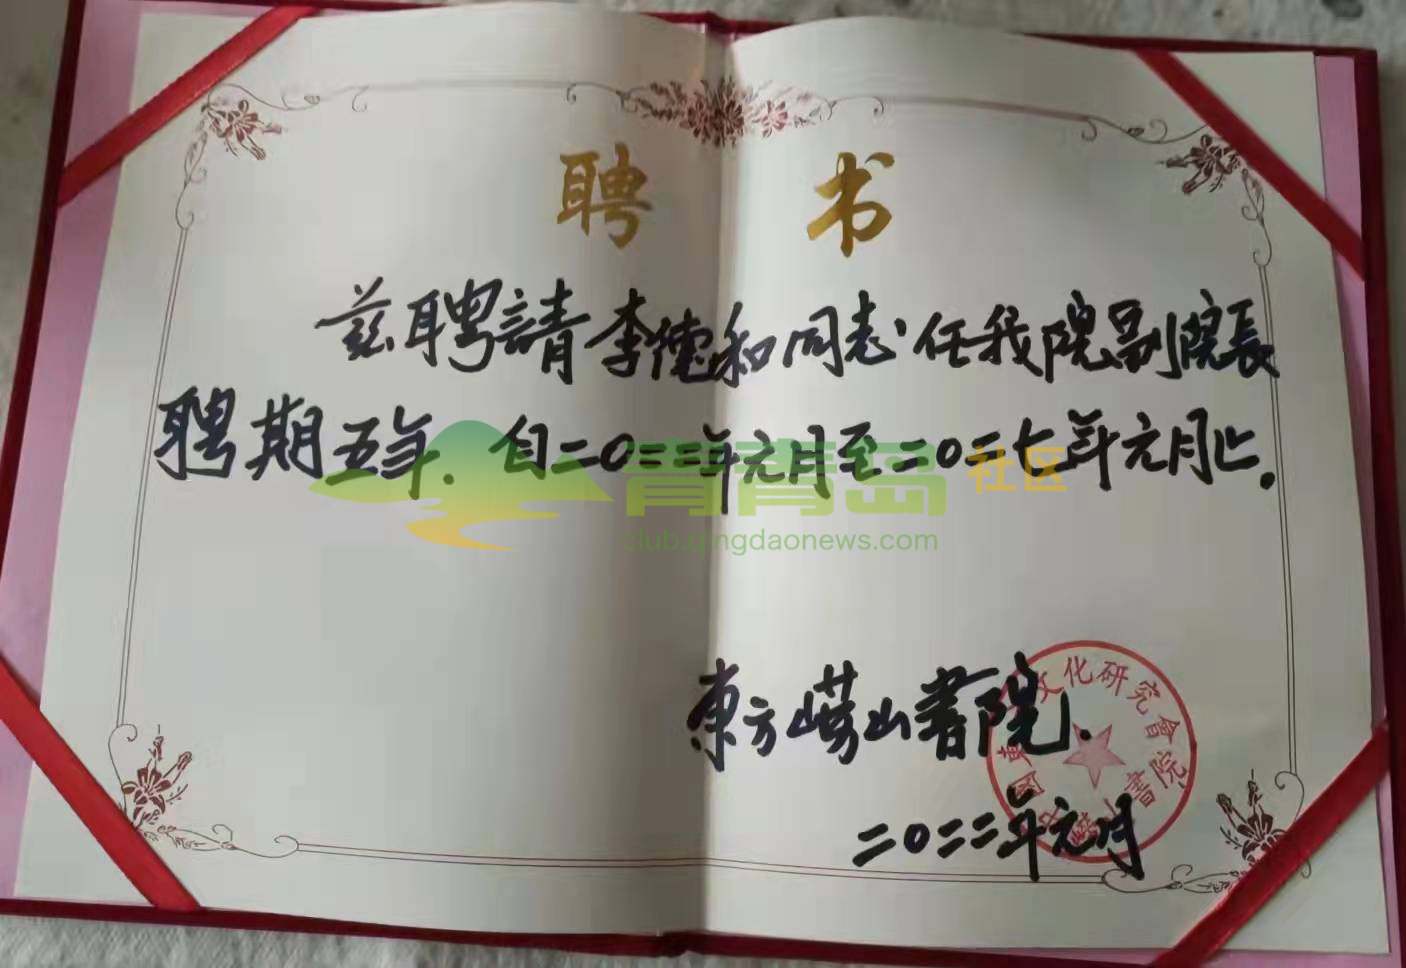 聘 书
兹聘請李德和同志任我院副院長
聘期五年.自二〇二二年元月至二〇二七年元月止.
青青岛社区
club.qingdaonews.com
東方崂山書院.
文化研究會
書院
二〇二二年元月